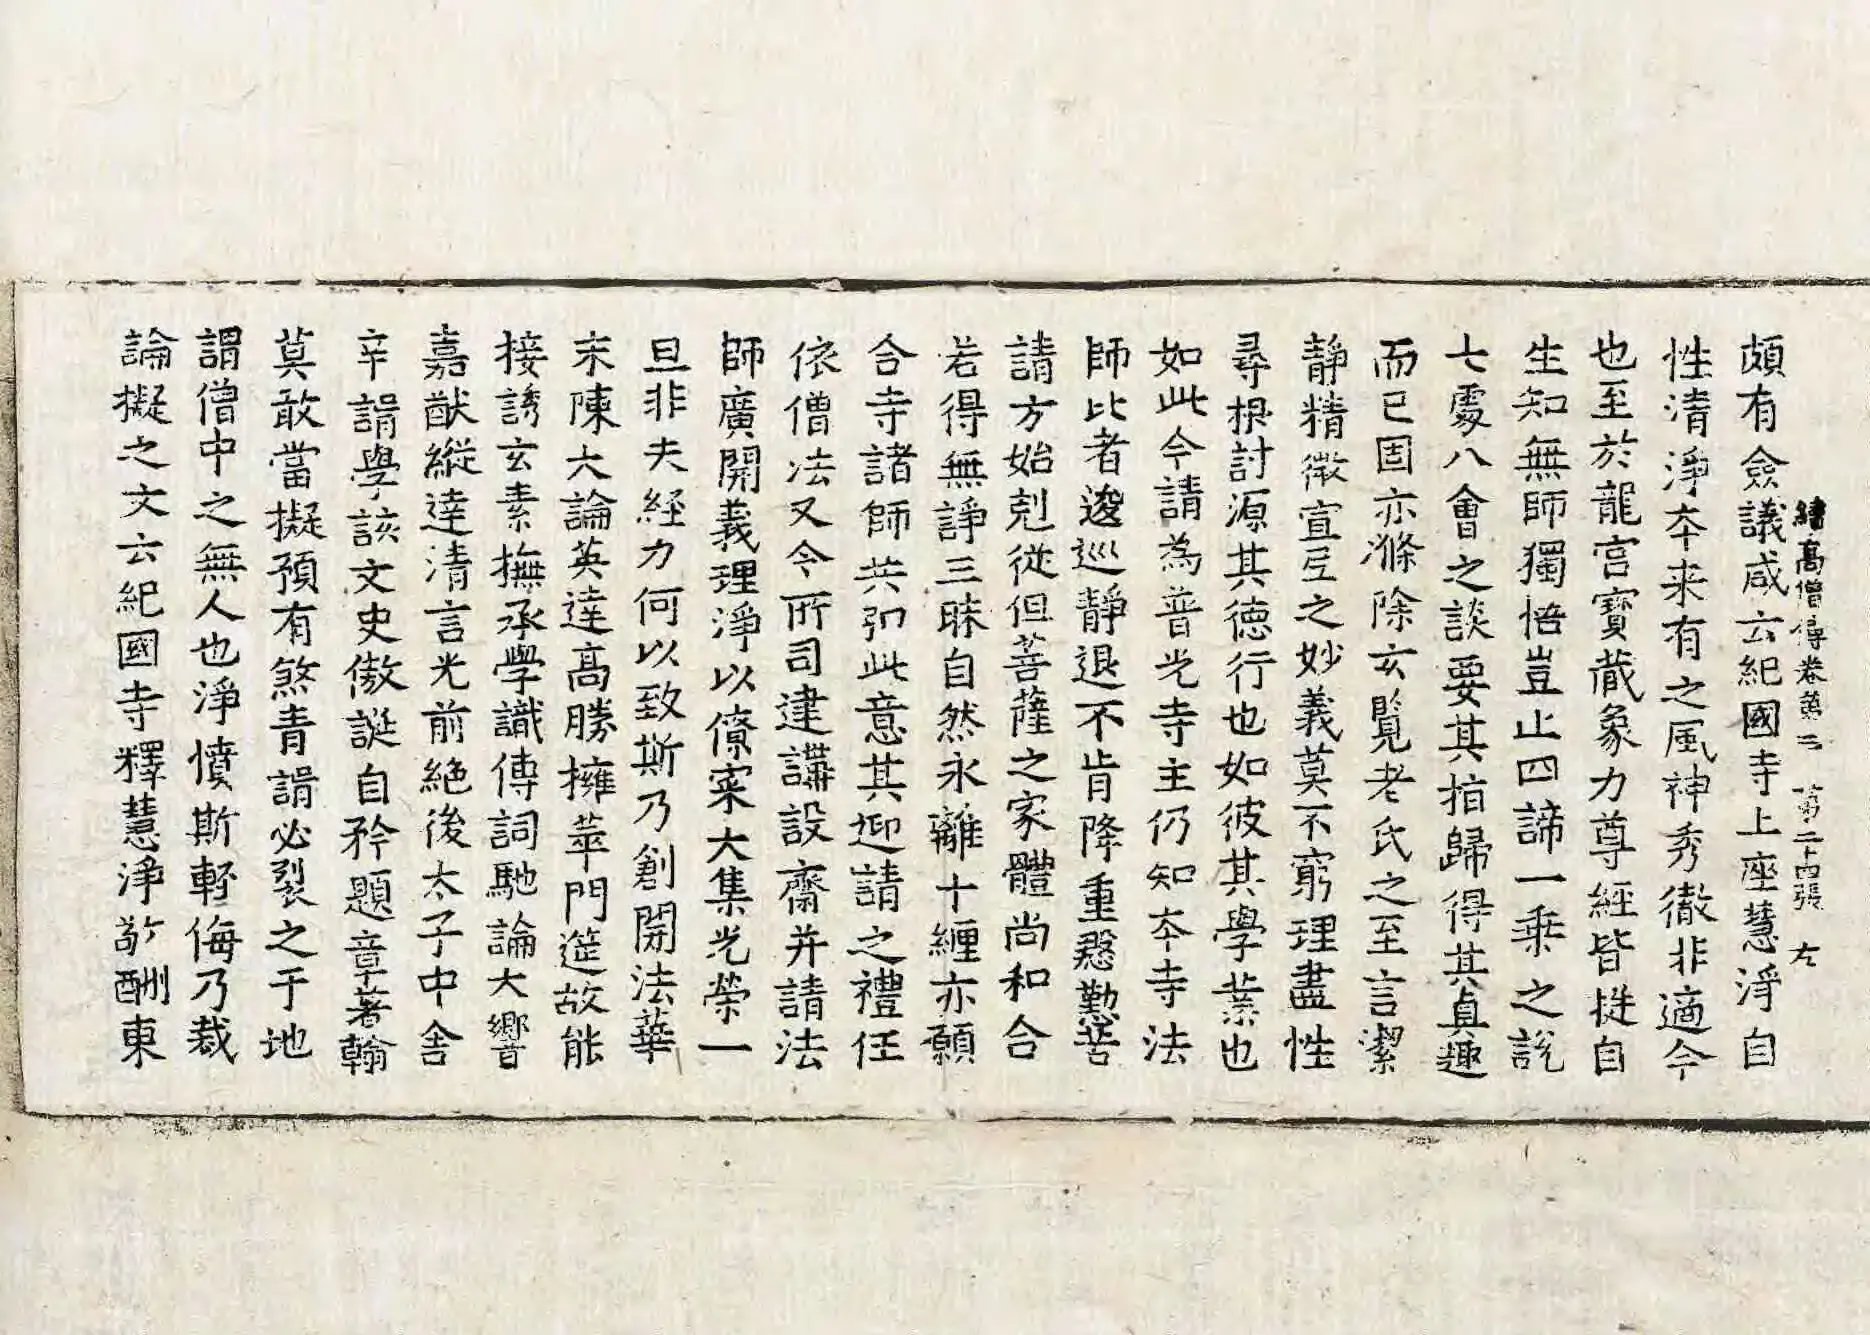 續高僧傳卷第三 第二十四張 左
頗有僉議咸云紀國寺上座慧淨自
性清淨夲来有之風神秀徹非適今
也至於龍宮寶蔵象力尊經皆挻自
生知無師獨悟豈止四諦一乗之說
七處八會之談要其指歸得其真趣
而已固亦滌除玄覽老氏之至言潔
静精微宣𡰱之妙義莫不窮理盡性
尋根討源其德行也如彼其學業也
如此今請為普光寺主仍知夲寺法
師比者逡巡静退不肯降重慇懃苦
請方始剋從但菩薩之家體尚和合
若得無諍三昧自然永離十纏亦願
合寺諸師共弘此意其迎請之禮任
依僧法又令所司建講設齋并請法
師廣開義理淨以僚寀大集光榮一
旦非夫經力何以致斯乃創開法華
末陳大論英達高勝擁萃門筵故能
接誘玄素撫承學識傅詞馳論大響
嘉猷縱達清言光前絶後太子中舎
辛諝學該文史傲誕自矜題章著翰
莫敢當擬預有煞青諝必裂之于地
謂僧中之無人也淨憤斯輕侮乃裁
論擬之文云紀國寺釋慧淨敬酬東